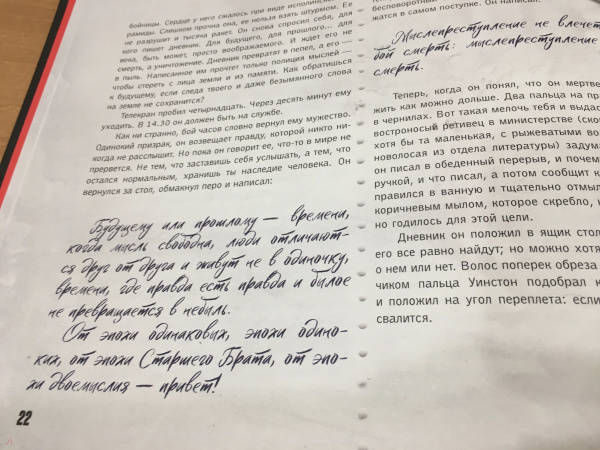 бойницы. Сердце у него сжалось при виде исполинской пи-
рамиды. Слишком прочна она, ее нельзя взять штурмом. Ее
не разрушит и тысяча ракет. Он снова спросил себя, для
кого пишет дневник. Для будущего, для прошлого... для
века, быть может, просто воображаемого. И ждет его не
смерть, а уничтожение. Дневник превратят в пепел, а его —
в пыль. Написанное им прочтет только полиция мыслей —
чтобы стереть с лица земли и из памяти. Как обратишься
к будущему, если следа твоего и даже безымянного слова
на земле не сохранится?
Телекран пробил четырнадцать. Через десять минут ему
уходить. В 14.30 он должен быть на службе.
Как ни странно, бой часов словно вернул ему мужество.
Одинокий призрак, он возвещает правду, которой никто ни-
когда не расслышит. Но пока он говорит ее, что-то в мире не
прервется. Не тем, что заставишь себя услышать, а тем, что
остался нормальным, хранишь ты наследие человека. Он
вернулся за стол, обмакнул перо и написал:
Будущему или прошлому — времени,
когда мысль свободна, люди отличают-
ся друг от друга и живут не в одиночку,
времени, где правда есть правда и былое
не превращается в небыль.
От эпохи одинаковых, эпохи одино-
ких, от эпохи Старшего Брата, от эпо-
хи двоемыслия — привет!
22
бесповоротный
жатся в самом поступке. Он написал:
Мыслепреступление не влечет
бой смерть: мыслепреступление
смерть.
Теперь, когда он понял, что он мертве
жить как можно дольше. Два пальца на пр
в чернилах. Вот такая мелочь тебя и выдас
востроносый ретивец в министерстве (ско
хотя бы та маленькая, с рыжеватыми во
новолосая из отдела литературы) задума
он писал в обеденный перерыв, и почем
ручкой, и что писал, а потом сообщит к
правился в ванную и тщательно отмыл
коричневым мылом, которое скребло, к
но годилось для этой цели.
Дневник он положил в ящик стол
его все равно найдут; но можно хотя
о нем или нет. Волос поперек обреза
чиком пальца Уинстон подобрал к
и положил на угол переплета: если
свалится.